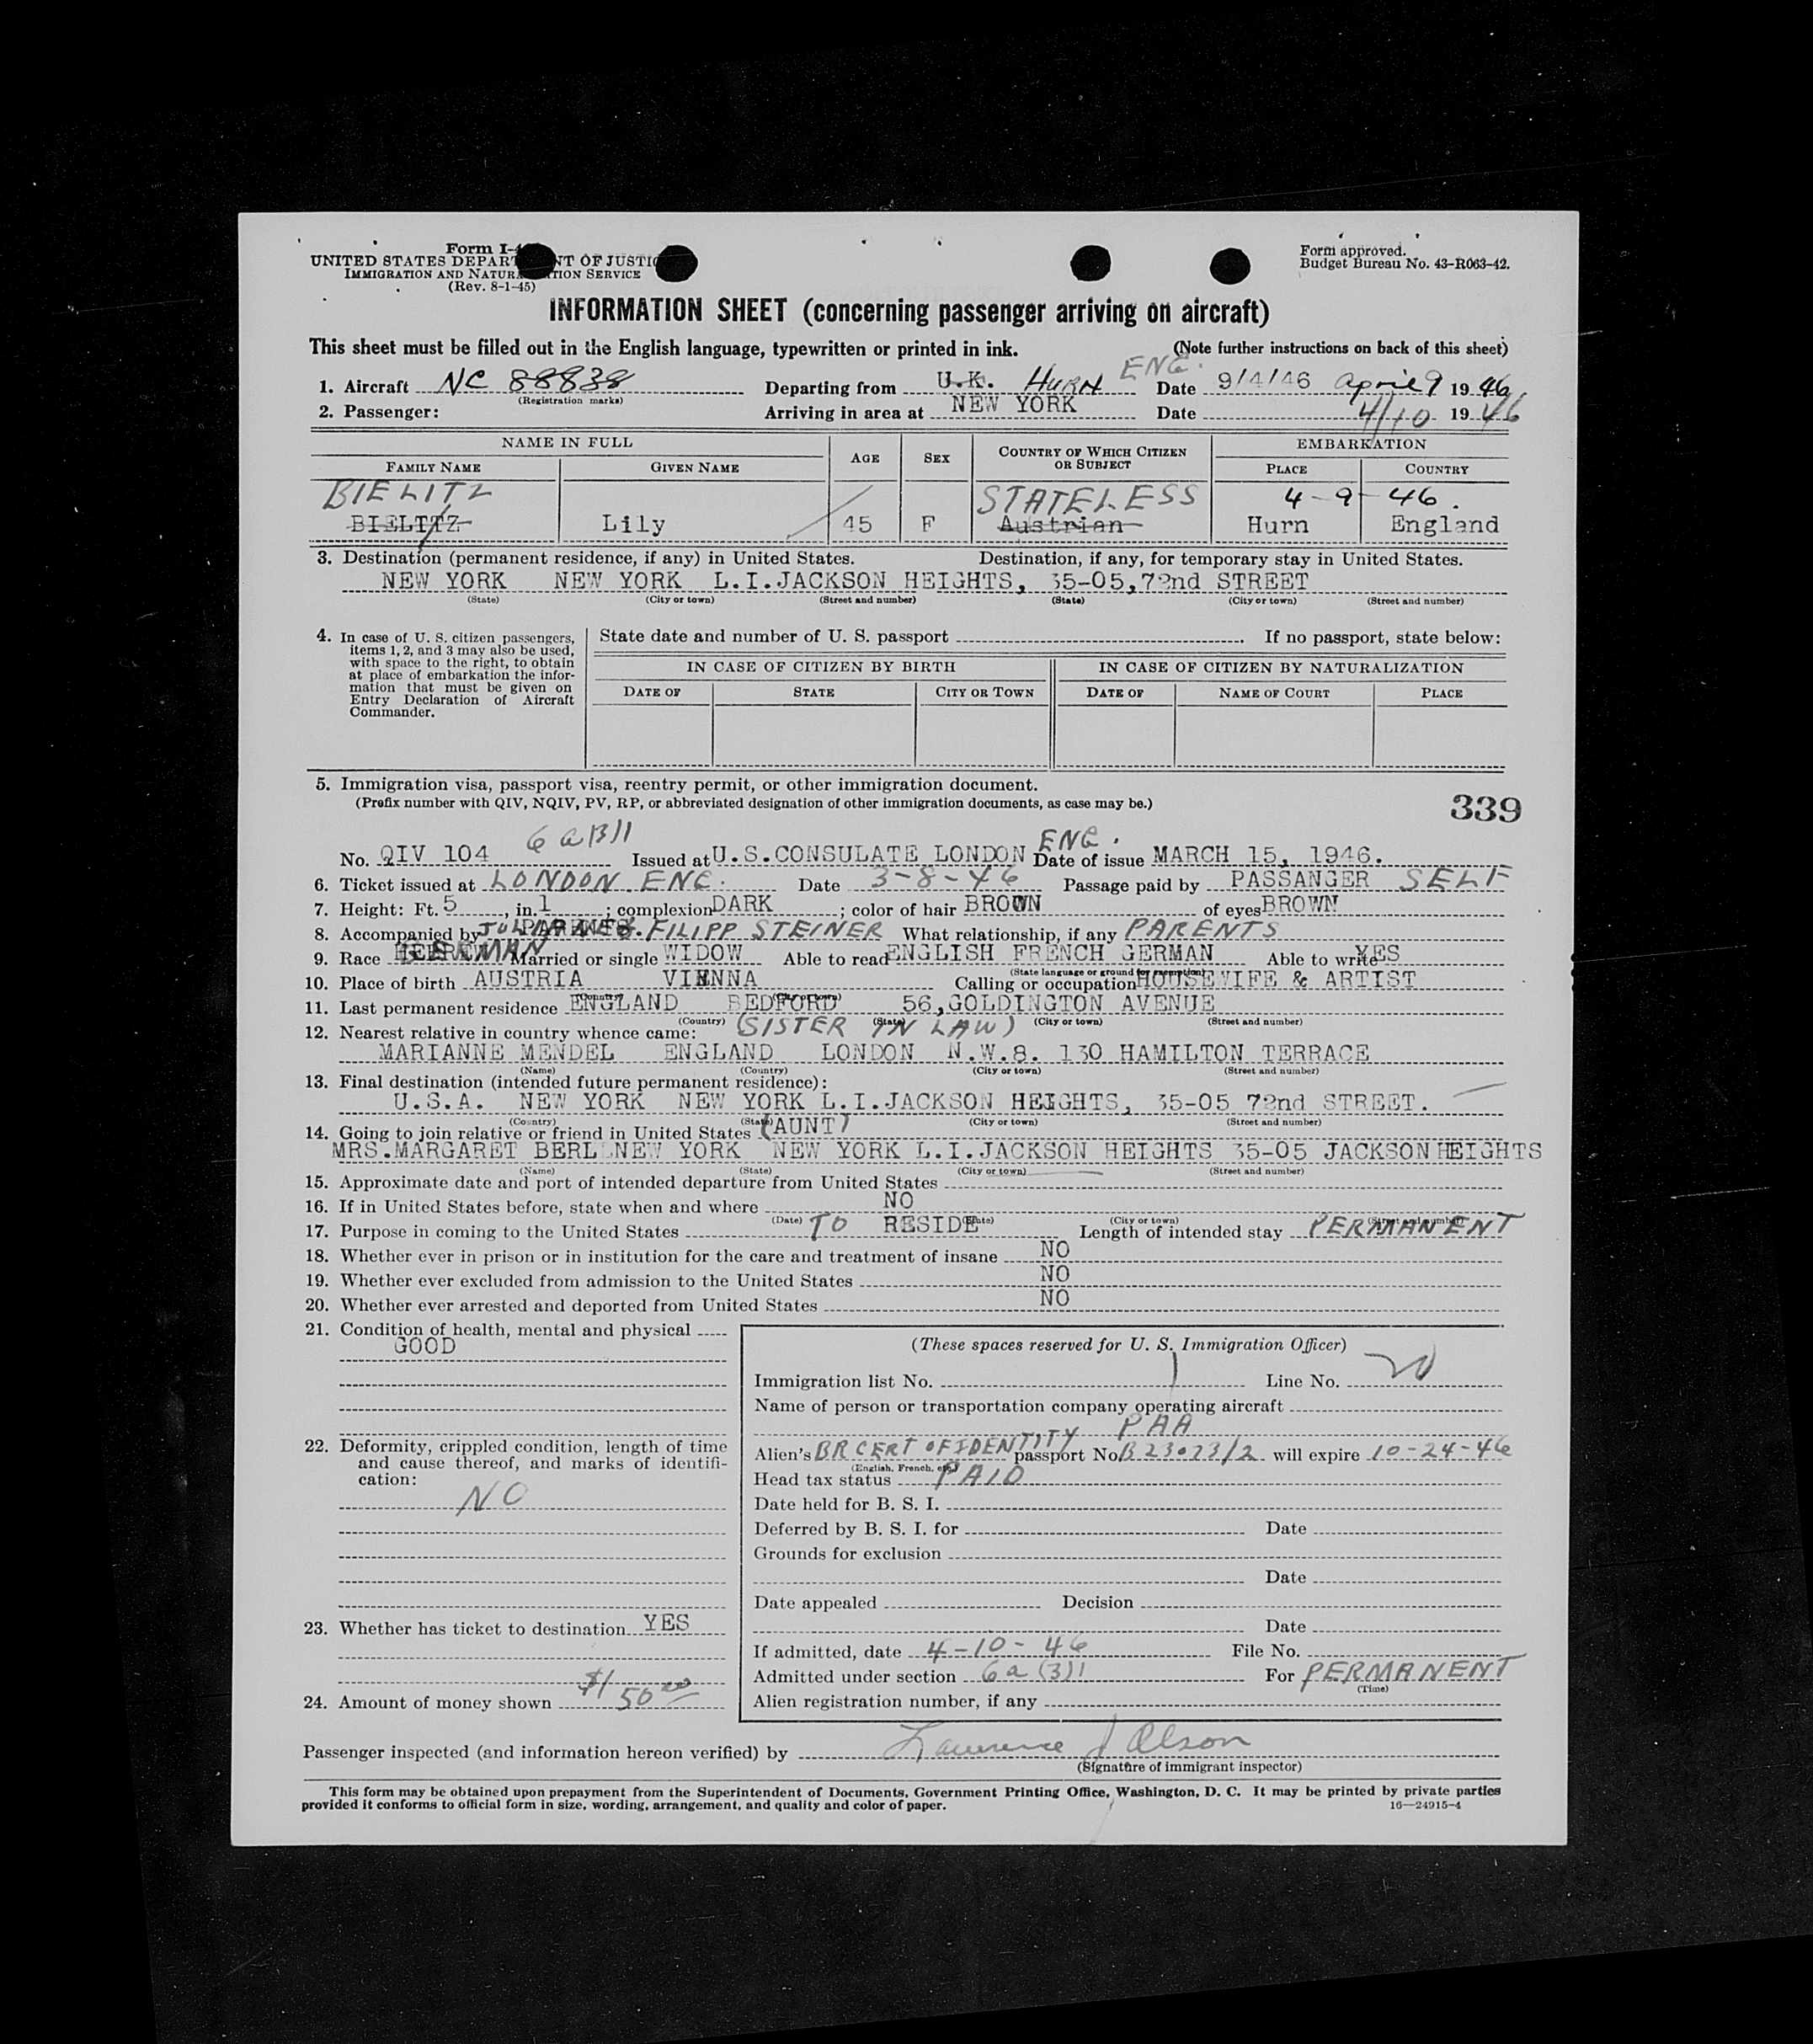 Form I-4
UNITED STATES DEPART NT OF JUSTIC
IMMIGRATION AND NATURA TION SERVICE
(Rev. 8-1-45)
Form approved.
Budget Bureau No. 43-R063-42.
INFORMATION SHEET (concerning passenger arriving on aircraft)
This sheet must be filled out in the English language, typewritten or printed in ink. (Note further instructions on back of this sheet)
1. Aircraft NC 88838 Departing from U.K. HURN ENG. Date 9/4/46 April 9 19 46
(Registration marks)
2. Passenger: Arriving in area at NEW YORK Date 4/10 19 46
NAME IN FULL AGE SEX COUNTRY OF WHICH CITIZEN OR SUBJECT EMBARKATION
FAMILY NAME GIVEN NAME PLACE COUNTRY
BIELITZ STATELESS 4-9-46.
BIELITZ Lily 45 F Austrian Hurn England
3. Destination (permanent residence, if any) in United States. Destination, if any, for temporary stay in United States.
NEW YORK NEW YORK L.I.JACKSON HEIGHTS, 35-05,72nd STREET
(State) (City or town) (Street and number) (State) (City or town) (Street and number)
4. In case of U. S. citizen passengers,
items 1, 2, and 3 may also be used,
with space to the right, to obtain
at place of embarkation the infor-
mation that must be given on
Entry Declaration of Aircraft
Commander.
State date and number of U. S. passport . If no passport, state below:
IN CASE OF CITIZEN BY BIRTH IN CASE OF CITIZEN BY NATURALIZATION
DATE OF STATE CITY OR TOWN DATE OF NAME OF COURT PLACE
5. Immigration visa, passport visa, reentry permit, or other immigration document.
(Prefix number with QIV, NQIV, PV, RP, or abbreviated designation of other immigration documents, as case may be.)
339
No. QIV 104 Issued at U.S.CONSULATE LONDON ENG. Date of issue MARCH 15, 1946.
6. Ticket issued at LONDON ENG. Date 3-8-46 Passage paid by PASSANGER SELF
7. Height: Ft. 5, in. 1; complexion DARK; color of hair BROWN of eyes BROWN
8. Accompanied by PARENTS. FILIPP STEINER What relationship, if any PARENTS
9. Race HEBREW GERMAN Married or single WIDOW Able to read ENGLISH FRENCH GERMAN Able to write YES
(State language or ground for exemption)
10. Place of birth AUSTRIA VIENNA Calling or occupation HOUSEWIFE & ARTIST
(Country) (City or town)
11. Last permanent residence ENGLAND BEDFORD 56,GOLDINGTON AVENUE
(Country) (State) (City or town) (Street and number)
12. Nearest relative in country whence came: (SISTER IN LAW)
MARIANNE MENDEL ENGLAND LONDON N.W.8. 130 HAMILTON TERRACE
(Name) (Country) (City or town) (Street and number)
13. Final destination (intended future permanent residence):
U.S.A. NEW YORK NEW YORK L.I.JACKSON HEIGHTS, 35-05 72nd STREET.
(Country) (State) (City or town) (Street and number)
14. Going to join relative or friend in United States (AUNT)
MRS.MARGARET BERL NEW YORK NEW YORK L.I.JACKSON HEIGHTS 35-05 JACKSON HEIGHTS
(Name) (State) (City or town) (Street and number)
15. Approximate date and port of intended departure from United States
16. If in United States before, state when and where NO
(Date) (State) (City or town) (Street and number)
17. Purpose in coming to the United States TO RESIDE Length of intended stay PERMANENT
18. Whether ever in prison or in institution for the care and treatment of insane NO
19. Whether ever excluded from admission to the United States NO
20. Whether ever arrested and deported from United States NO
21. Condition of health, mental and physical
GOOD
22. Deformity, crippled condition, length of time
and cause thereof, and marks of identifi-
cation:
NO
23. Whether has ticket to destination YES
24. Amount of money shown $150.00
(These spaces reserved for U. S. Immigration Officer)
Immigration list No. 1 Line No. 20
Name of person or transportation company operating aircraft
PAA
Alien's BR CERT OF IDENTITY passport No B23023/2 will expire 10-24-46
(English, French, etc.)
Head tax status PAID
Date held for B. S. I.
Deferred by B. S. I. for Date
Grounds for exclusion
Date
Date appealed Decision
Date
If admitted, date 4-10-46 File No.
Admitted under section 6a(3)1 For PERMANENT
(Time)
Alien registration number, if any
Passenger inspected (and information hereon verified) by Lawrence J Olson
(Signature of immigrant inspector)
This form may be obtained upon prepayment from the Superintendent of Documents, Government Printing Office, Washington, D. C. It may be printed by private parties
provided it conforms to official form in size, wording, arrangement, and quality and color of paper. 16—24915-4